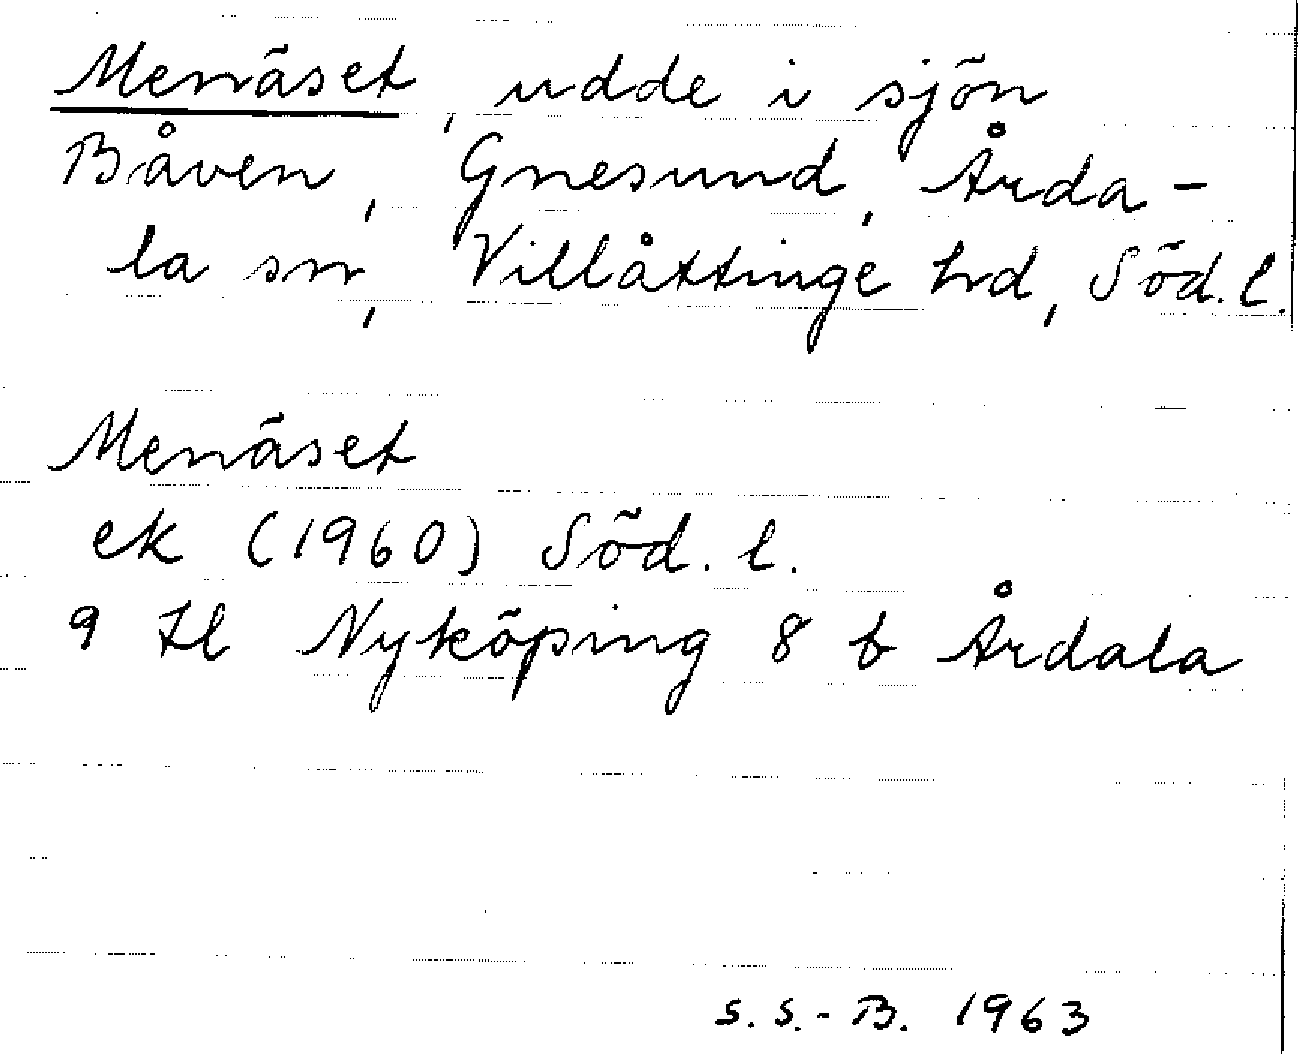 Menäset, udde i sjön
Båven, Gnesund, Årda-
la sn, Villåttinge hd, Söd. l.
Menäset
ek (1960) Söd. l.
9 H Nyköping 8 b Årdala
S. S.-B. 1963